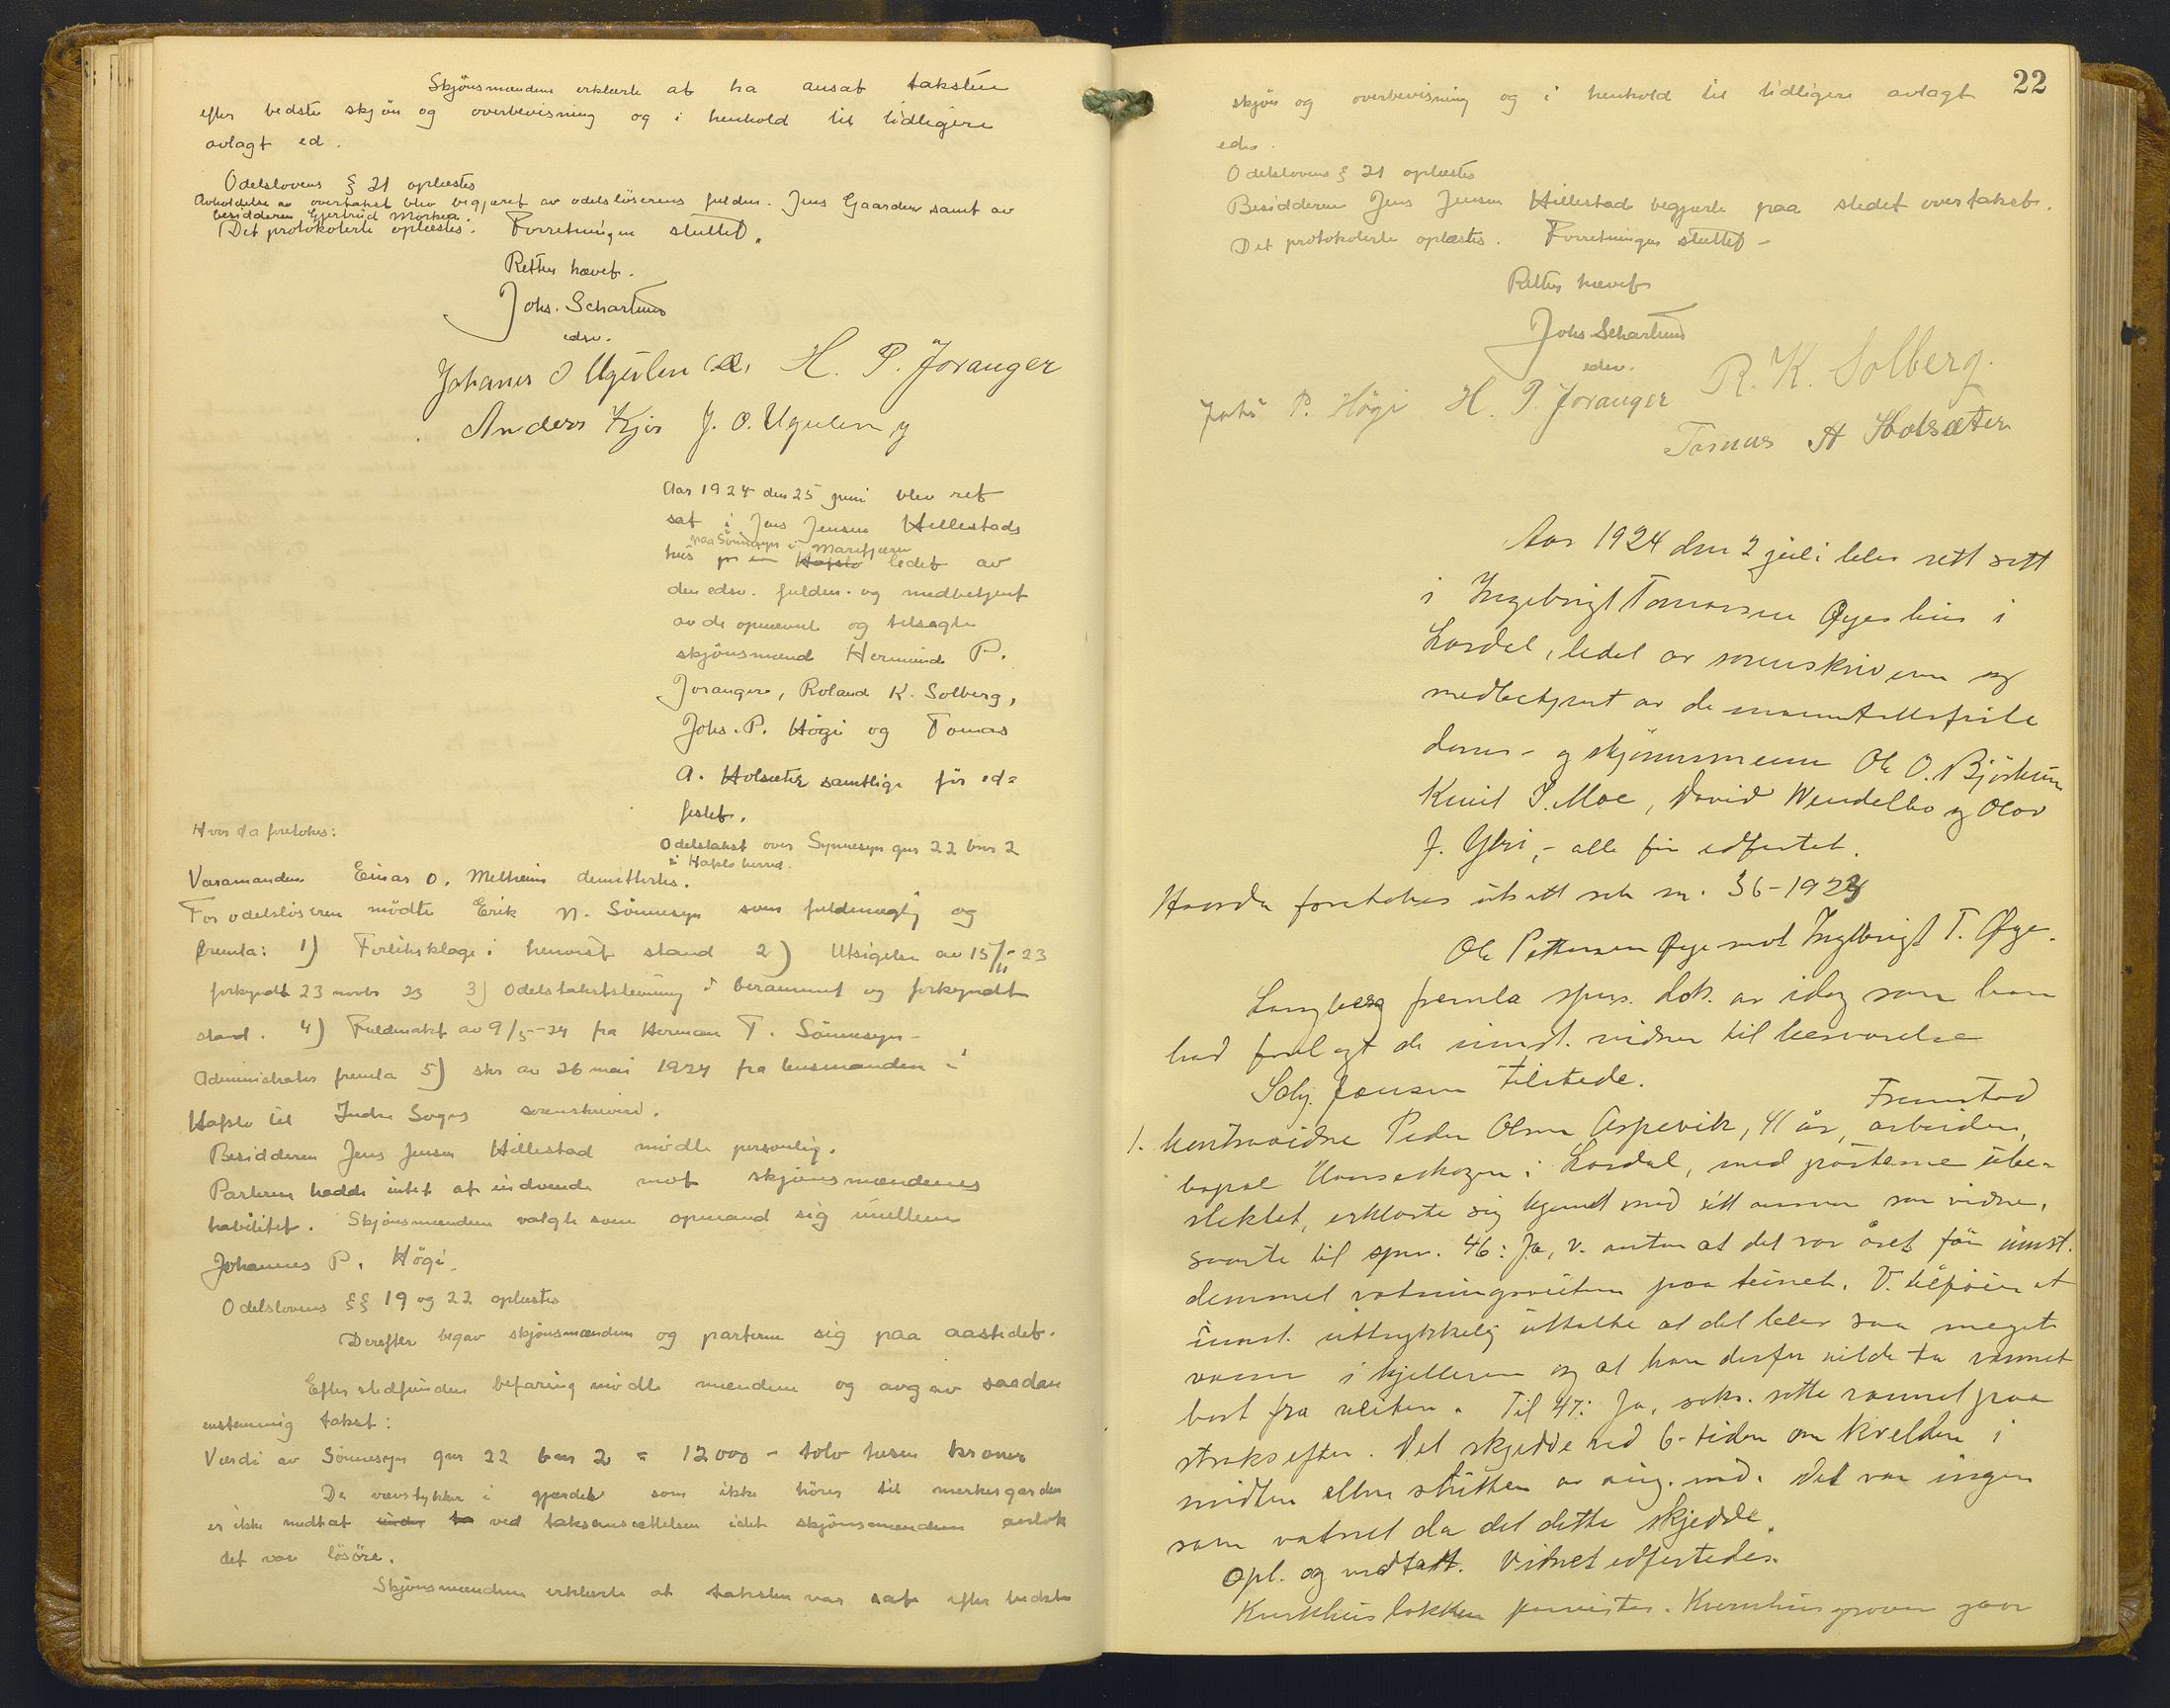 Skjönsmændene erklærte at ha ansat taksten
efter bedste skjön og overbevisning og i henhold til tidligere
avlagt ed.
Odelslovens § 21 oplæstes
Avholdelse av overtakst blev begjæret av odelslöserens fuldm. Jens Gaarden samt av
besidderen Gjertrud Mörkea.
Det protokolerte oplæstes. Forretningen sluttet.
Retten hævet.
Johs. Scharlund
edsv.
Johanes O Ugulen H. P. Joranger
Anders Kjos J. O. Ugulen
Aar 1924 den 25 juni blev ret
sat i Jens Jensen Hillestads
paa Sönnesyn i Marifjæren
hus Hafslo ledet av
den edsv. fuldm. og medbetjent
av de opnævnte og tilsagte
skjönsmænd Hermund P.
Joranger, Roland K. Solberg,
Johs. P. Högi og Tomas
A. Holsæter samtlige för ed=
festet.
Hvor da foretokes:
Odelstakst over Synnesyn gnr 22 bnr 2
i Hafslo herred.
Varamanden Einar O. Melheim demitteres.
For odelslöseren mödte Erik N. Sönnesyn som fuldmægtig og
fremla: 1) Forliksklage i henvist stand 2) Utsigelse av 15/11-23
forkyndt 23 novbr 23 3) Odelstakststevning i berammet og forkyndt
stand. 4) Fuldmakt av 9/5-24 fra Herman T. Sönnesyn-
Administrator fremla 5) skr av 26 mai 1924 fra lensmanden i
Hafslo til Indre Sogns sorenskriveri.
Besidderen Jens Jensen Hillestad mödte personlig.
Parterne hadde intet at indvende mot skjönsmændenes
habilitet. Skjönsmændene valgte som opmand sig imellem
Johannes P. Högi.
Odelslovens §§ 19 og 22 oplæstes
Derefter begav skjönsmændene og parterne sig paa aastedet.
Efter stedfunden befaring mödte mændene og avgav saadan
enstemmig takst:
Værdi av Sönnesyn gnr 22 bnr 2 = 12000 - tolv tusen kroner
De vævstykker i gjærdet som ikke hörer til merkesgarden
er ikke medtat ved taksansættelsen idet skjönsmændene antok
det var lösöre.
Skjönsmændene erklærte at taksten var sat efter bedste
22
skjön og overbevisning og i henhold til tidligere avlagt
eder.
Odelslovens § 21 oplæstes
Besidderen Jens Jensen Hillestad begjærte paa stedet overtakst.
Det protokolerte oplæstes. Forretningen sluttet -
Retten hævet
Johs Scharlund
edsv.
R. K. Solberg.
Johs P. Högi H. P. Joranger
Tomas A Holsæter
Aar 1924 den 2 juli blev rett sett
i Ingebrigt Tomassen Øyes hus i
Lærdal, ledet av sorenskriveren og
medbetjent av de manntallsførte
doms- og skjönnsmenn Ole O. Bjørkum
Knut I. Moe, David Wendelbo og Olav
J. Ylvi,- alle før edfestet.
Hvorda foretokes utsatt sak nr. 36-1923
Ole Pettersen Øye mot Ingebrigt T. Øye.
Langberg fremla spm. dok. av idag som han
had forelagt de innst. vidner til besvarelse
Selv. Jensen tilstede.
Fremstod
1. kontravidne Peder Olsen Aspevik, 41 år, arbeider,
bopæl Hanseshagen i Lærdal, med parterne ube-
slektet, erklærte sig kjent med sitt ansvar som vidne,
svarte til spm. 46: Ja, v. antar at det var året før innst.
demmet vatningsveiten paa teinet. V. tilføier at
innst. uttrykkelig uttalte at det blev saa meget
vann i kjelleren og at han derfor vilde ta vannet
bort fra veiten. Til 47: Ja, saks. sette vannet paa
straks efter. Det skjedde ved 6-tiden om kvelden i
midten eller slutten av aug. md. Det var ingen
som vatnet da det dette skjedde.
Opl. og vedtatt. Vidnet edfestedes.